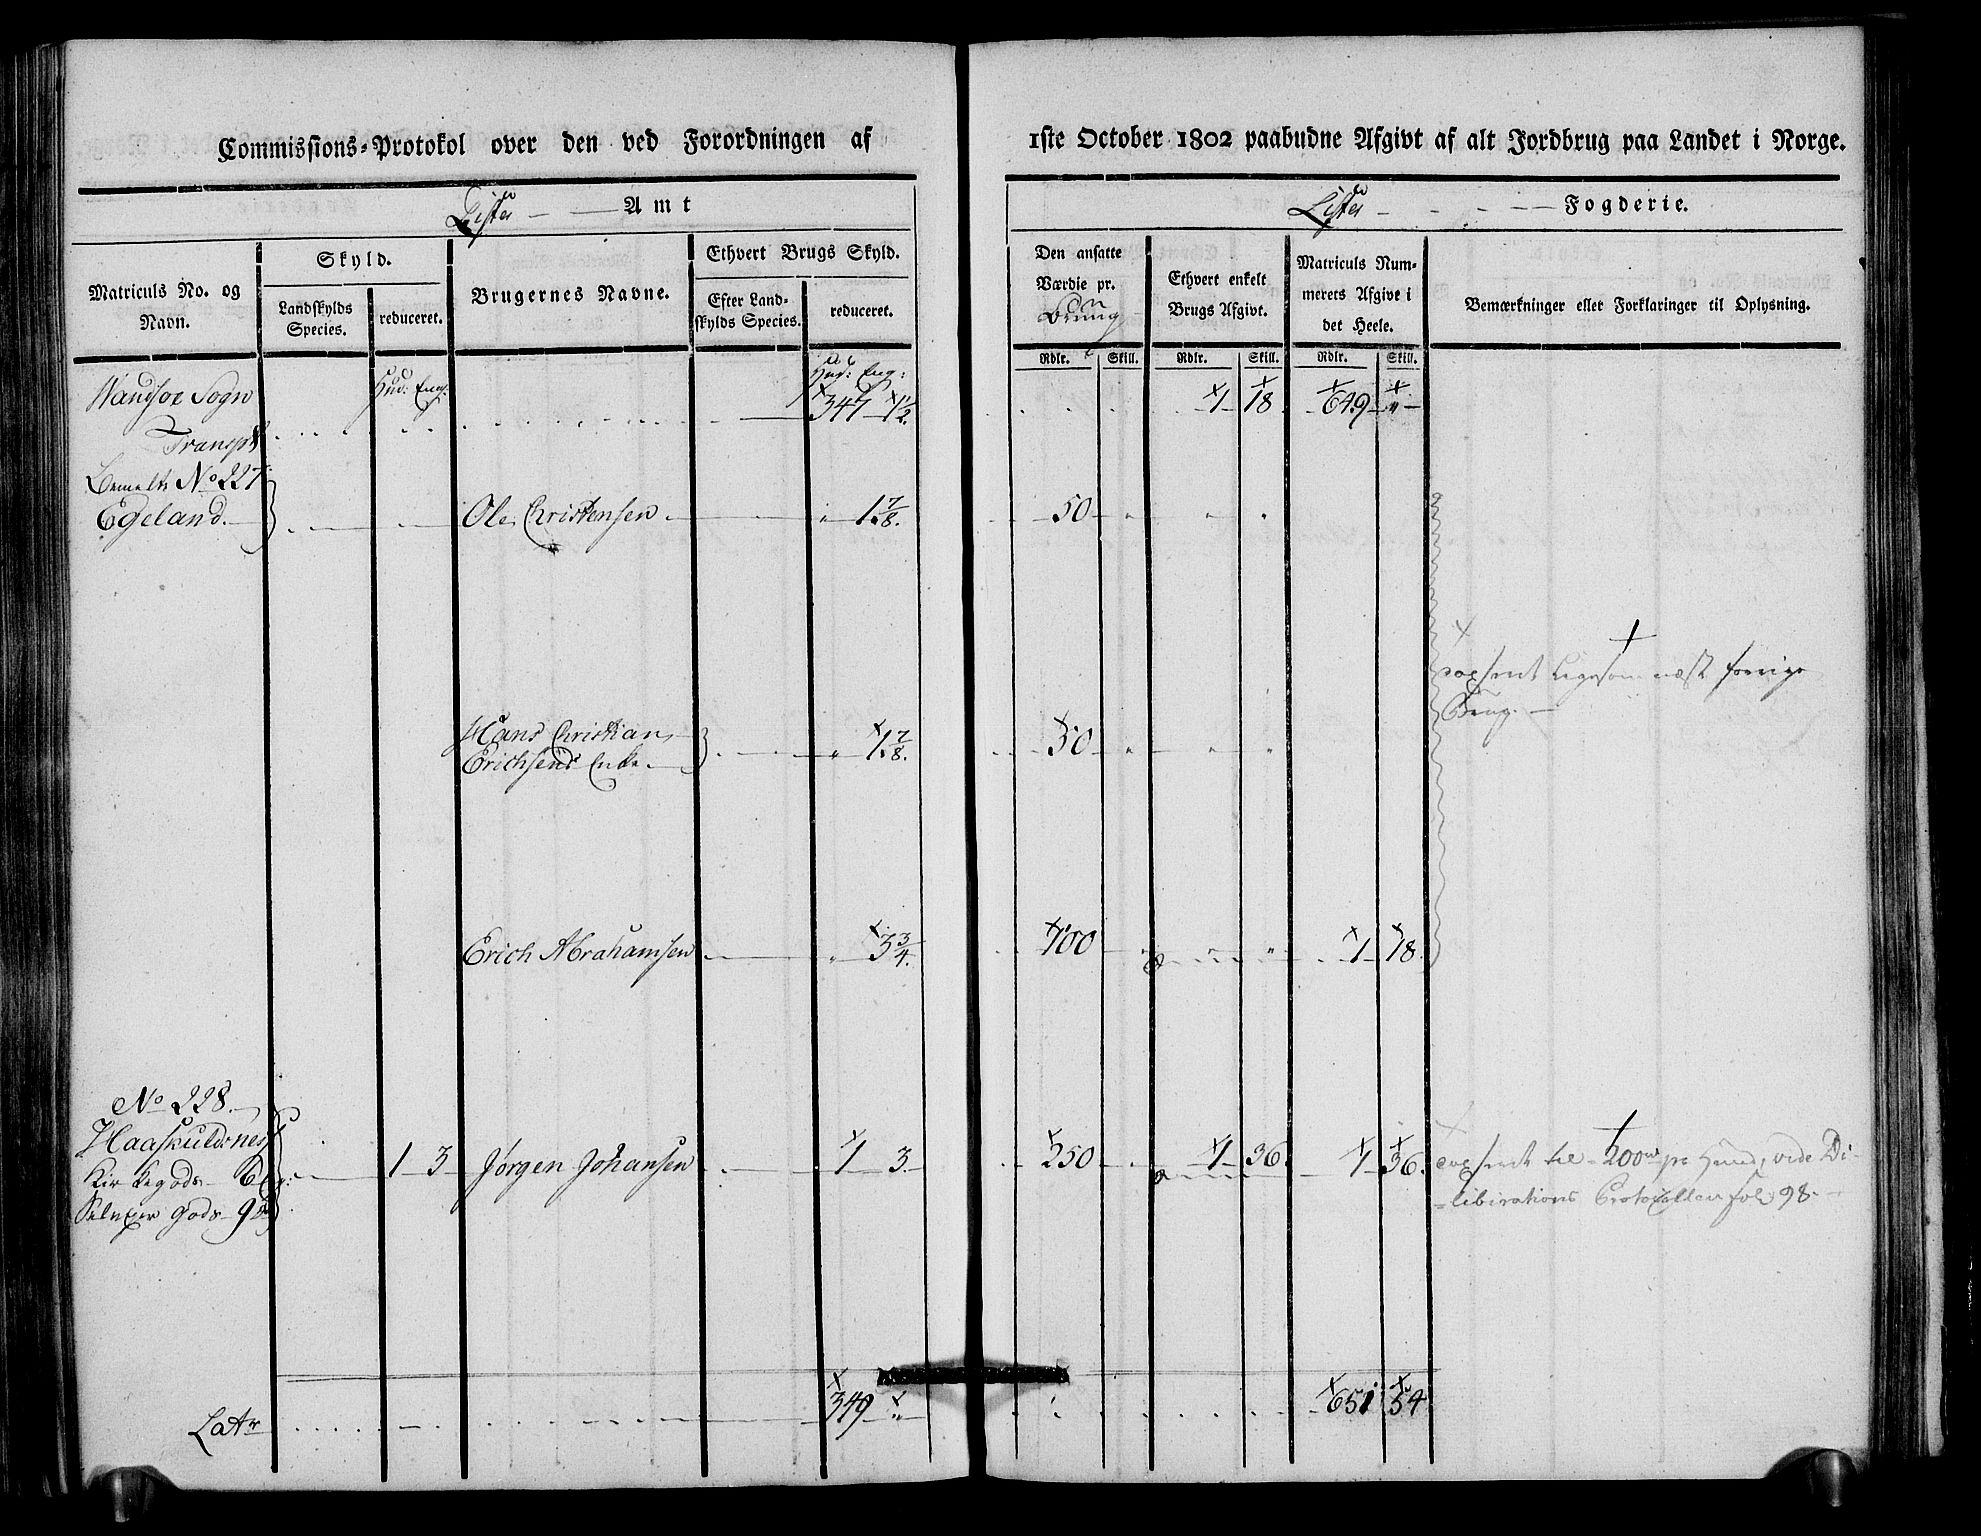 Commissions-Protokol over den ved Forordningen af 1ste October 1802 paabudne Afgivt af alt Jordbrug paa Landet i Norge.
Lister Amt
Lister Fogderie.
Matriculs No. og Navn.
Skyld.
Landskylds Species.
reduceret.
Brugernes Navne.
Ethvert Brugs Skyld.
Efter Landskylds Species.
reduceret.
Den ansatte Værdie pr. Brug
Ethvert enkelt Brugs Afgivt.
Matriculs Nummerets Afgivt i det Heele.
Bemærkninger eller Forklaringer til Oplysning.
Rdlr. Skill. Rdlr. Skill. Rdlr. Skill.
Hud: Eng: Hud: Eng:
Wandsøe Sogn
Transpt 347 1/2. 1 18 649 "
No 227
Egeland. Ole Christensen " 1 7/8. 50 " " "
Hans Christian
Erichsens Enke " 1 7/8. 50 " " "
Erich Abrahamsen " 3 3/4. 100 " 1 18.
ligesom næst forrige
Brug.
No 228.
Haaskuldsnes 1 3 Jørgen Johansen 1 3. 250 1 36. 1 36.
Kirkegods 6
Gods 9
til 200 pr Hud, vide De-
liberations Protocollen fol 98.
Latr 349 " 651 54